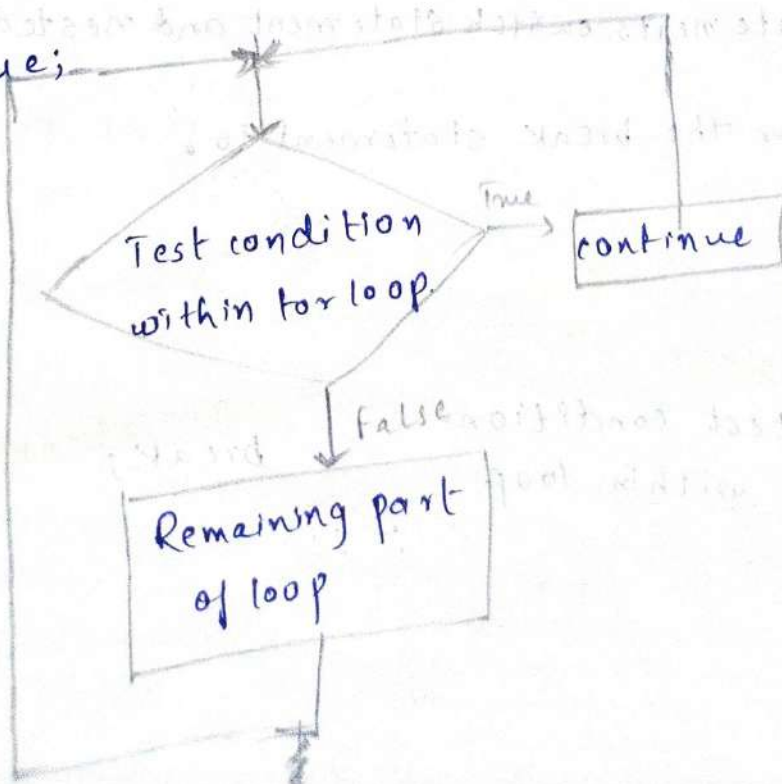 ue;
True
Test condition
within for loop.
continue
False
Remaining part
of loop